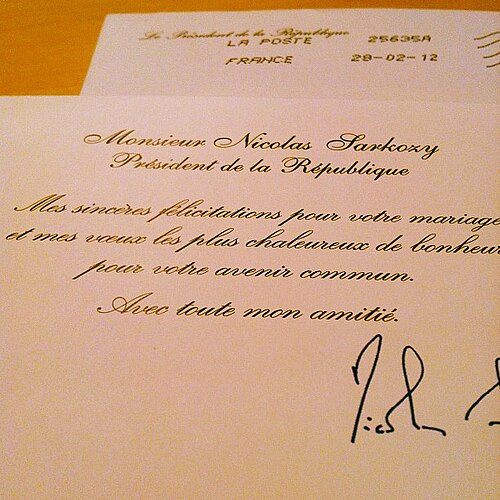 Le Président de la République
LA POSTE 25635A
FRANCE 28-02-12
Monsieur Nicolas Sarkozy
Président de la République
Mes sincères félicitations pour votre mariage
et mes vœux les plus chaleureux de bonheur
pour votre avenir commun.
Avec toute mon amitié.
Nicolas